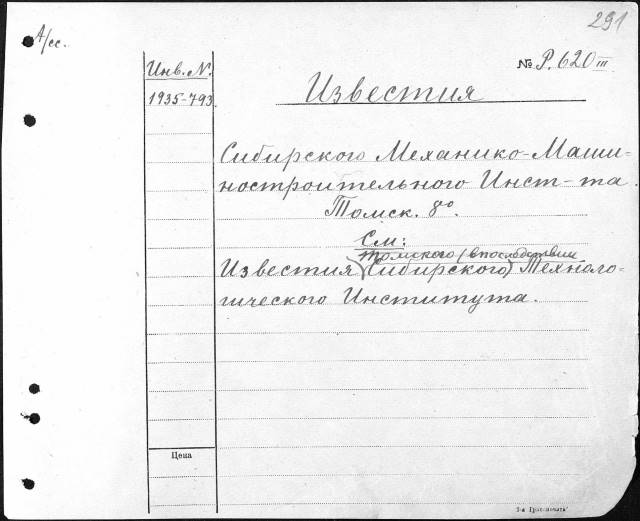 291
А/сс.
Инв. N.
1935-793
№ Р. 620 III
Известия
Сибирского Механико-Маши-
ностроительного Инст-та
Томск. 8°.
См:
Томского (впоследствии
Известия Сибирского) Техноло-
гического Института.
Цена